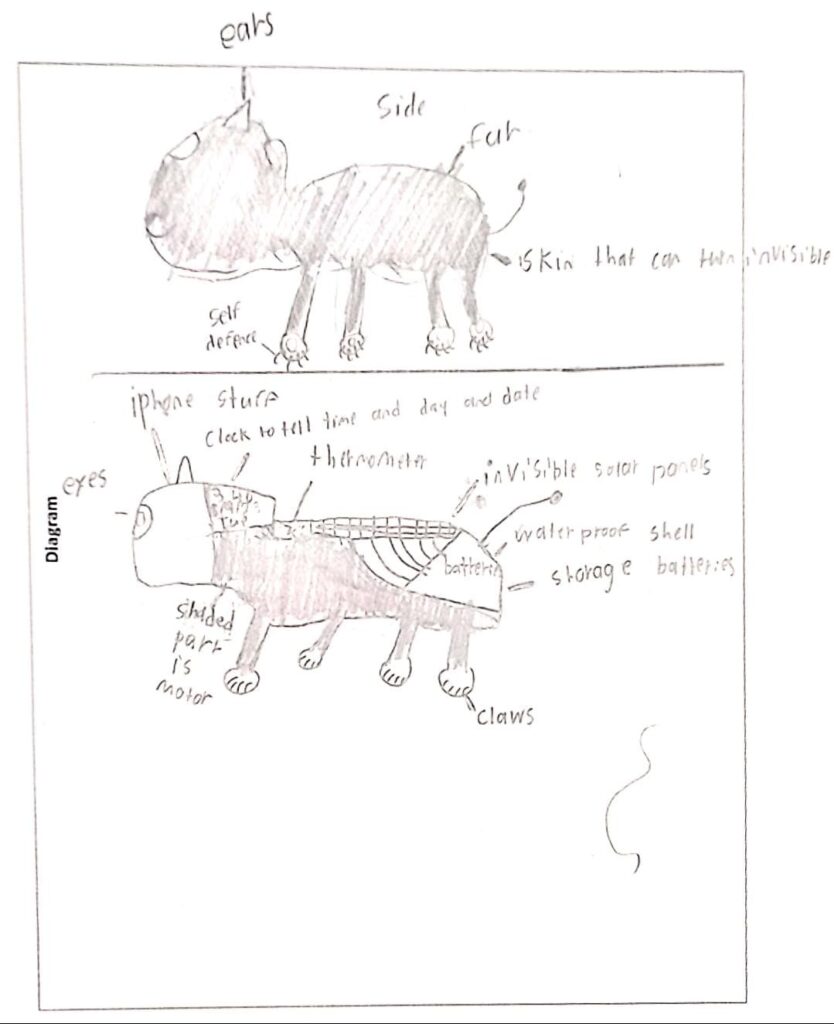 ears
side
fur
skin that can turn invisible
self
defence
iphone stuff
clock to tell time and day and date
thermometer
invisible solar panels
eyes
Diagram
waterproof shell
batteries
storage batteries
shaded
part
is
motor
claws